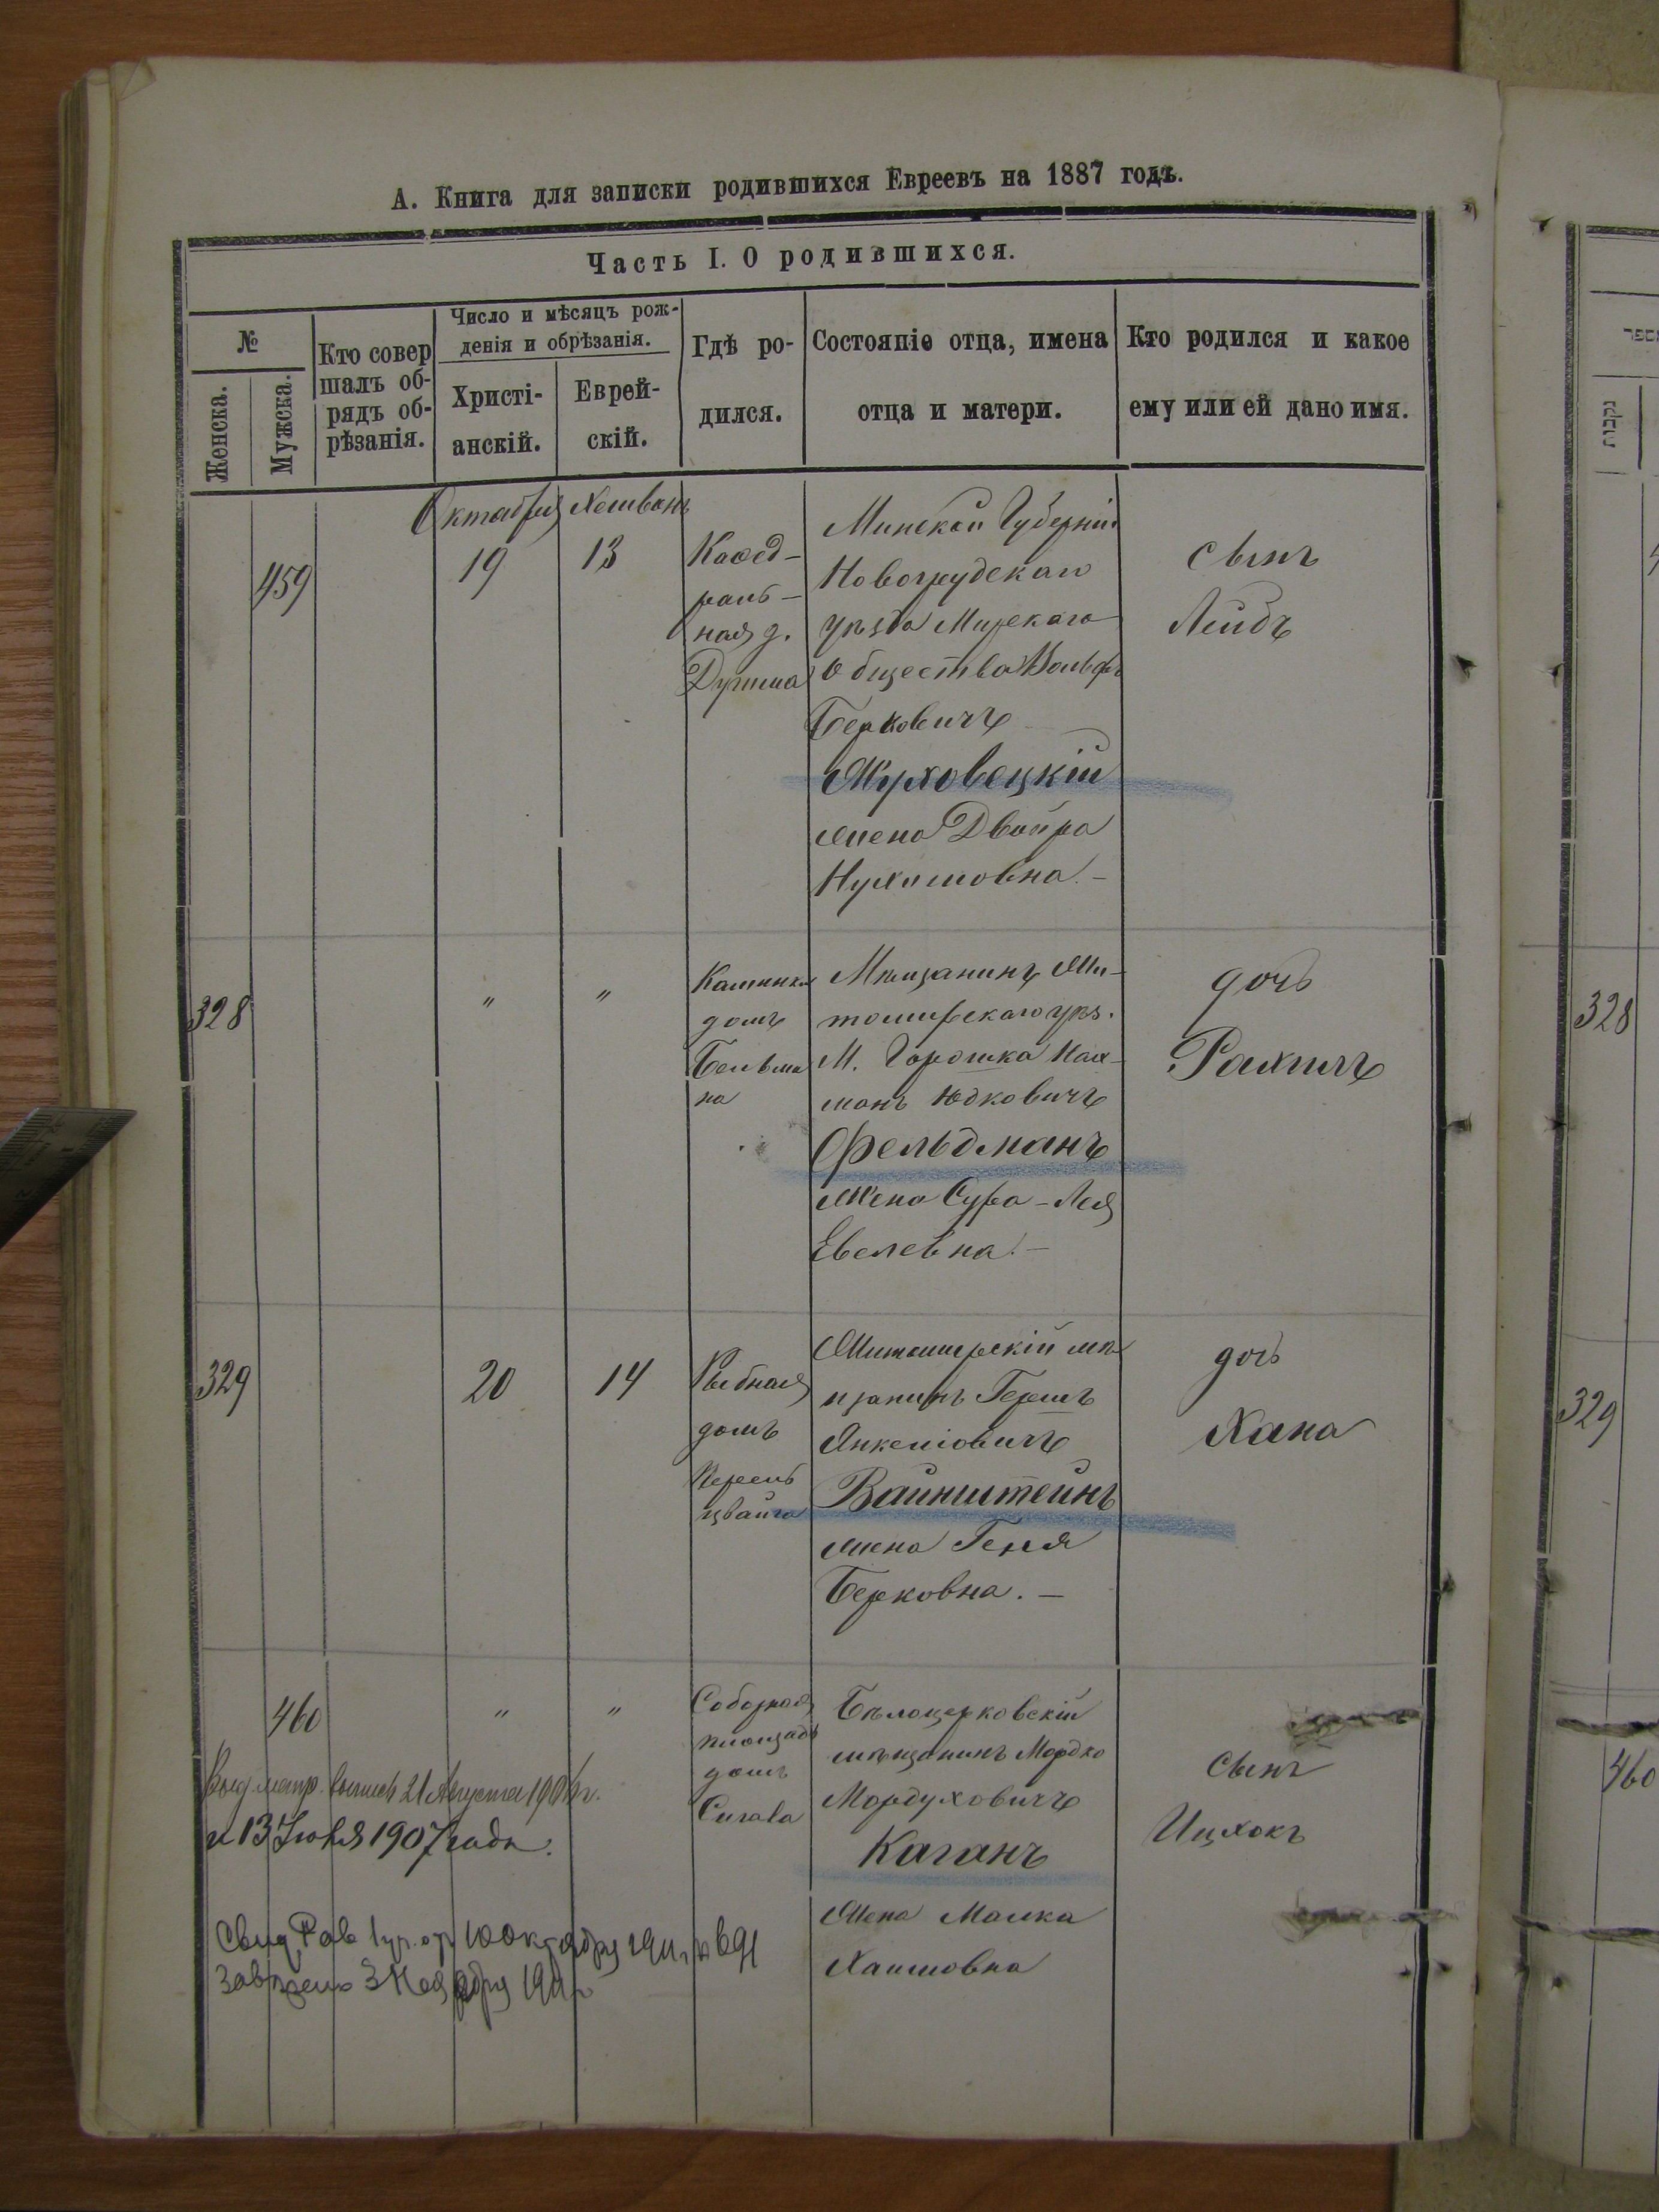 А. Книга для записки родившихся Евреевъ на 1887 годъ.
Часть I. О родившихся.
№
Женска.
Мужска.
Кто совер
шалъ об-
рядъ об-
рѣзанія.
Число и мѣсяцъ рож-
денія и обрѣзанія.
Христі-
анскій.
Еврей-
скій.
Гдѣ ро-
дился.
Состояніе отца, имена
отца и матери.
Кто родился и какое
ему или ей дано имя.
Октября Хешванъ
459
19
13
Каѳед-
раль-
ная д.
Минской Губерніи
Новогрудскаго
уѣзда Мирскаго
Общества Вольфъ
Берковичъ
Жуховецкій
жена Двойра
Нухимовна. -
сынъ
Лейбъ
328
"
"
домъ
Бельма
на
Мѣщанинъ Жи-
томирскаго уѣз.
М. Горошка Нах-
манъ Юдковичъ
Фельдманъ
жена Сура - Лея
Евелевна. -
дочь
Рахиль
329
20
14
Рыбная
домъ
Перель
цвайга
Житомирскій мѣ
щанинъ Гершъ
Янкелiовичъ
Вайнштейнъ
жена Геня
Берковна. -
дочь
Хана
460
"
"
Соборная
площадь
домъ
Бѣлоцерковскій
мѣщанинъ Мордко
Мордуховичъ
Каганъ
жена Малка
Хаимовна
сынъ
Ицхокъ
Выд. метр. выпись 21 Августа 1906 г.
и 13 Іюня 1907 года.
10 Октября 1911 г
3 Ноября 1911 г
328
329
460